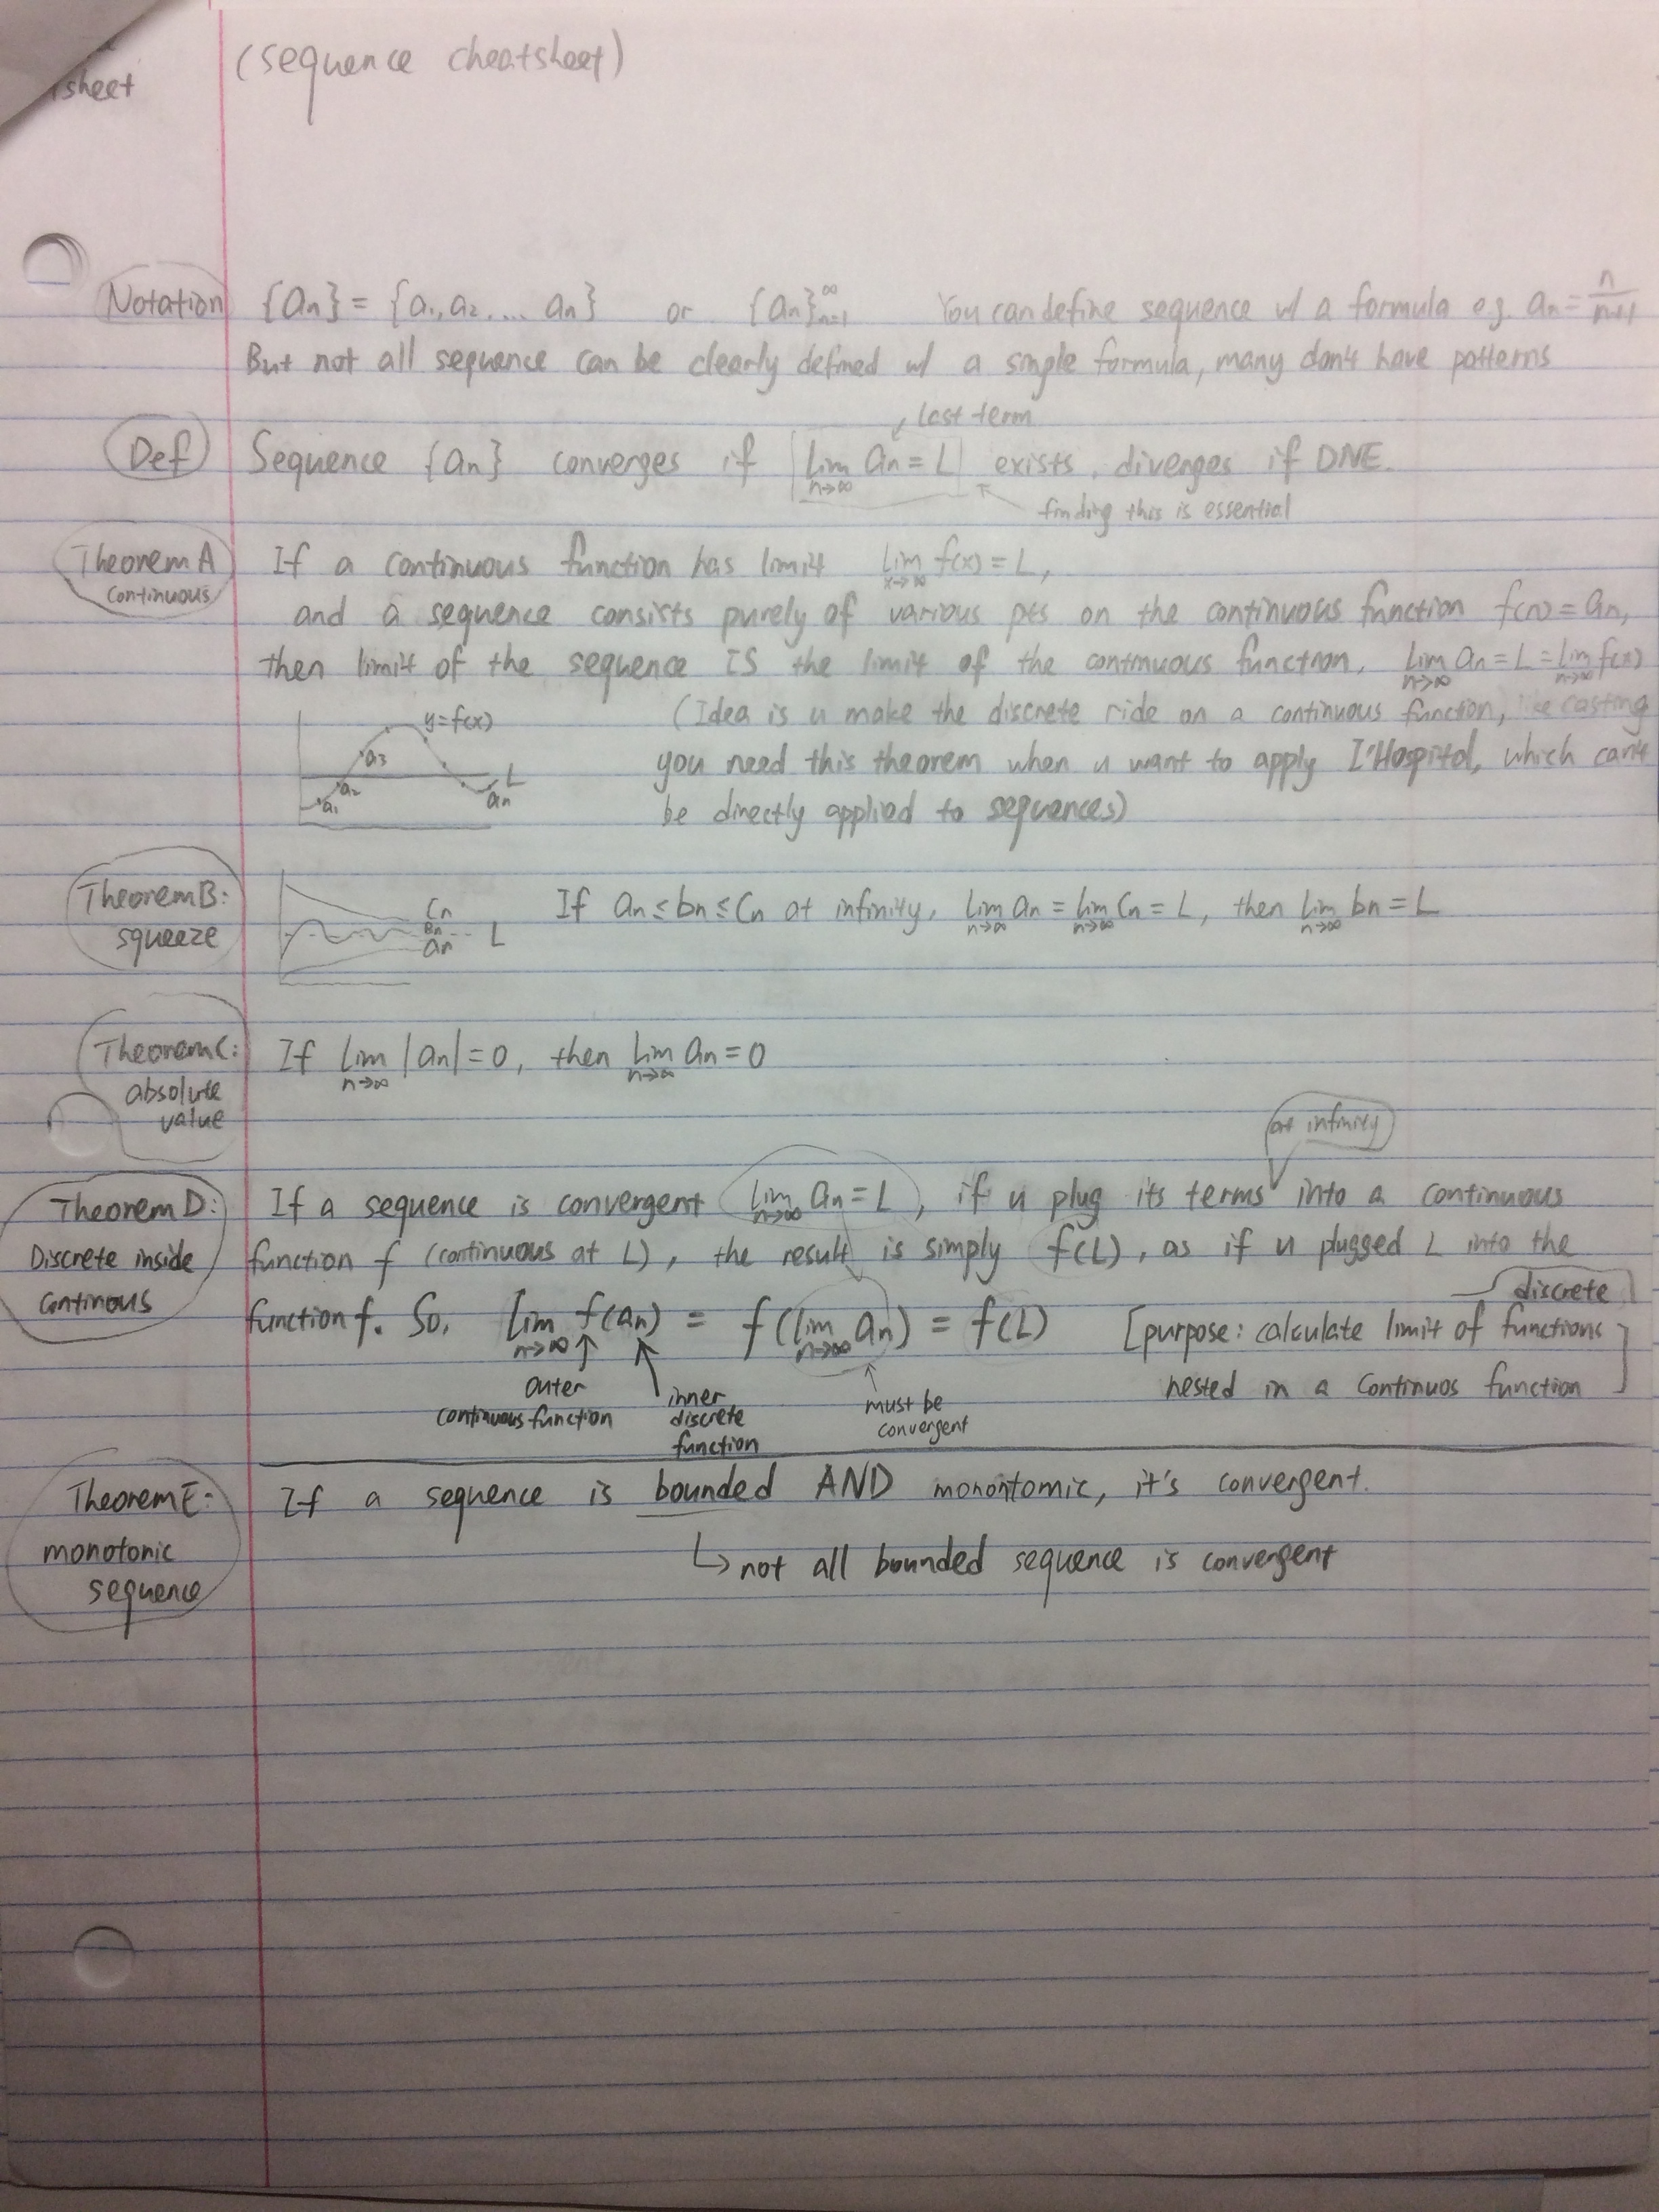 sheet
(sequence cheatsheet)
Notation {an} = {a1, a2, ... an} or {an}∞n=1 You can define sequence w/ a formula e.g. an = n/n+1
But not all sequence can be clearly defined w/ a single formula, many don't have patterns
last term
Def Sequence {an} converges if lim n→∞ an = L exists, diverges if DNE.
finding this is essential
Theorem A If a continuous function has limit lim x→∞ f(x) = L,
continuous
and a sequence consists purely of various pts on the continuous function f(n) = an,
then limit of the sequence IS the limit of the continuous function. lim n→∞ an = L = lim n→∞ f(x)
y=f(x)
a1 a2 a3 an L
(Idea is u make the discrete ride on a continuous function, like casting
you need this theorem when u want to apply l'Hospital, which can't
be directly applied to sequences)
Theorem B:
squeeze
Cn
Bn L
an
If an ≤ bn ≤ Cn at infinity, lim n→∞ an = lim n→∞ Cn = L, then lim n→∞ bn = L
Theorem C: If lim n→∞ |an| = 0, then lim n→∞ an = 0
absolute
value
at infinity
Theorem D: If a sequence is convergent lim n→∞ an = L, if u plug its terms into a continuous
Discrete inside function f (continuous at L), the result is simply f(L), as if u plugged L into the
discrete
Continous function f. So, lim n→∞ f(an) = f(lim n→∞ an) = f(L) [purpose: calculate limit of functions
nested in a Continuos function]
outer
continuous function
inner
discrete
function
must be
convergent
Theorem E: If a sequence is bounded AND monontomic, it's convergent.
monotonic
sequence
↳ not all bounded sequence is convergent